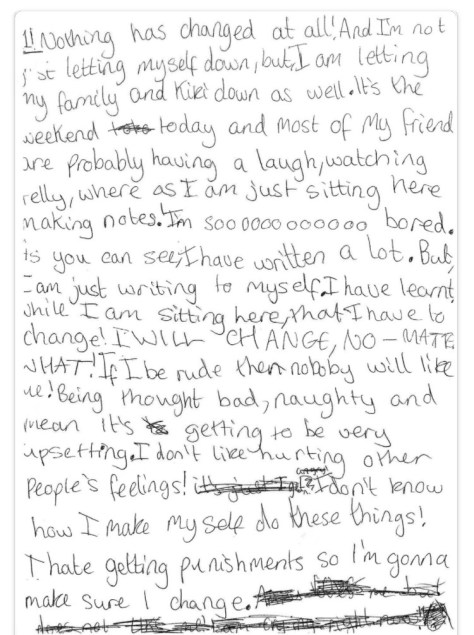 1! Nothing has changed at all! And I'm not
j st letting myself down, but, I am letting
my family and Kiki down as well. It's the
weekend today and most of my friend
are probably having a laugh, watching
telly, where as I am just sitting here
making notes! I'm soooooooooooooo bored.
As you can see, I have written a lot. But,
I am just writing to myself. I have learnt,
while I am sitting here, that I have to
change! I WILL CHANGE, NO-MATE
WHAT! If I be rude then noboby will like
me! Being thought bad, naughty and
mean it's getting to be very
upsetting. I don't like hurting other
People's feelings! I don't know
how I make my self do these things!
I hate getting punishments so I'm gonna
make sure I change.